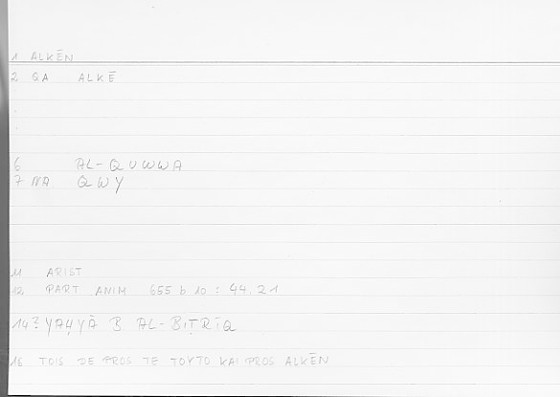 1 ALKĒN
2 QA ALKĒ
6 AL-QUWWA
7 NA QWY
11 ARIST
12 PART ANIM 655 b 10 : 44.21
14 ? YAḤYĀ B AL-BIṬRĪQ
16 TOIS DE PROS TE TOYTO KAI PROS ALKĒN